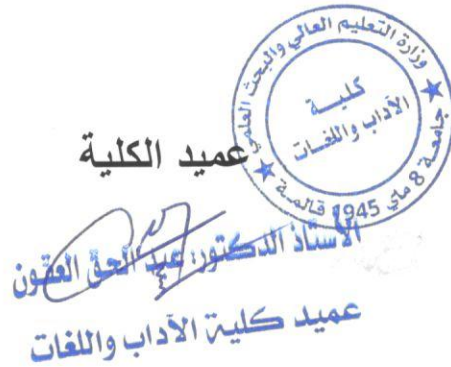 وزارة التعليم العالي والبحث العلمي
★ جامعة 8 ماي 1945 قالمة ★
كليـــة
الآداب واللغـــات
عميد الكلية
الأستاذ الدكتور: عبد الحق العقون
عميد كلية الآداب واللغات